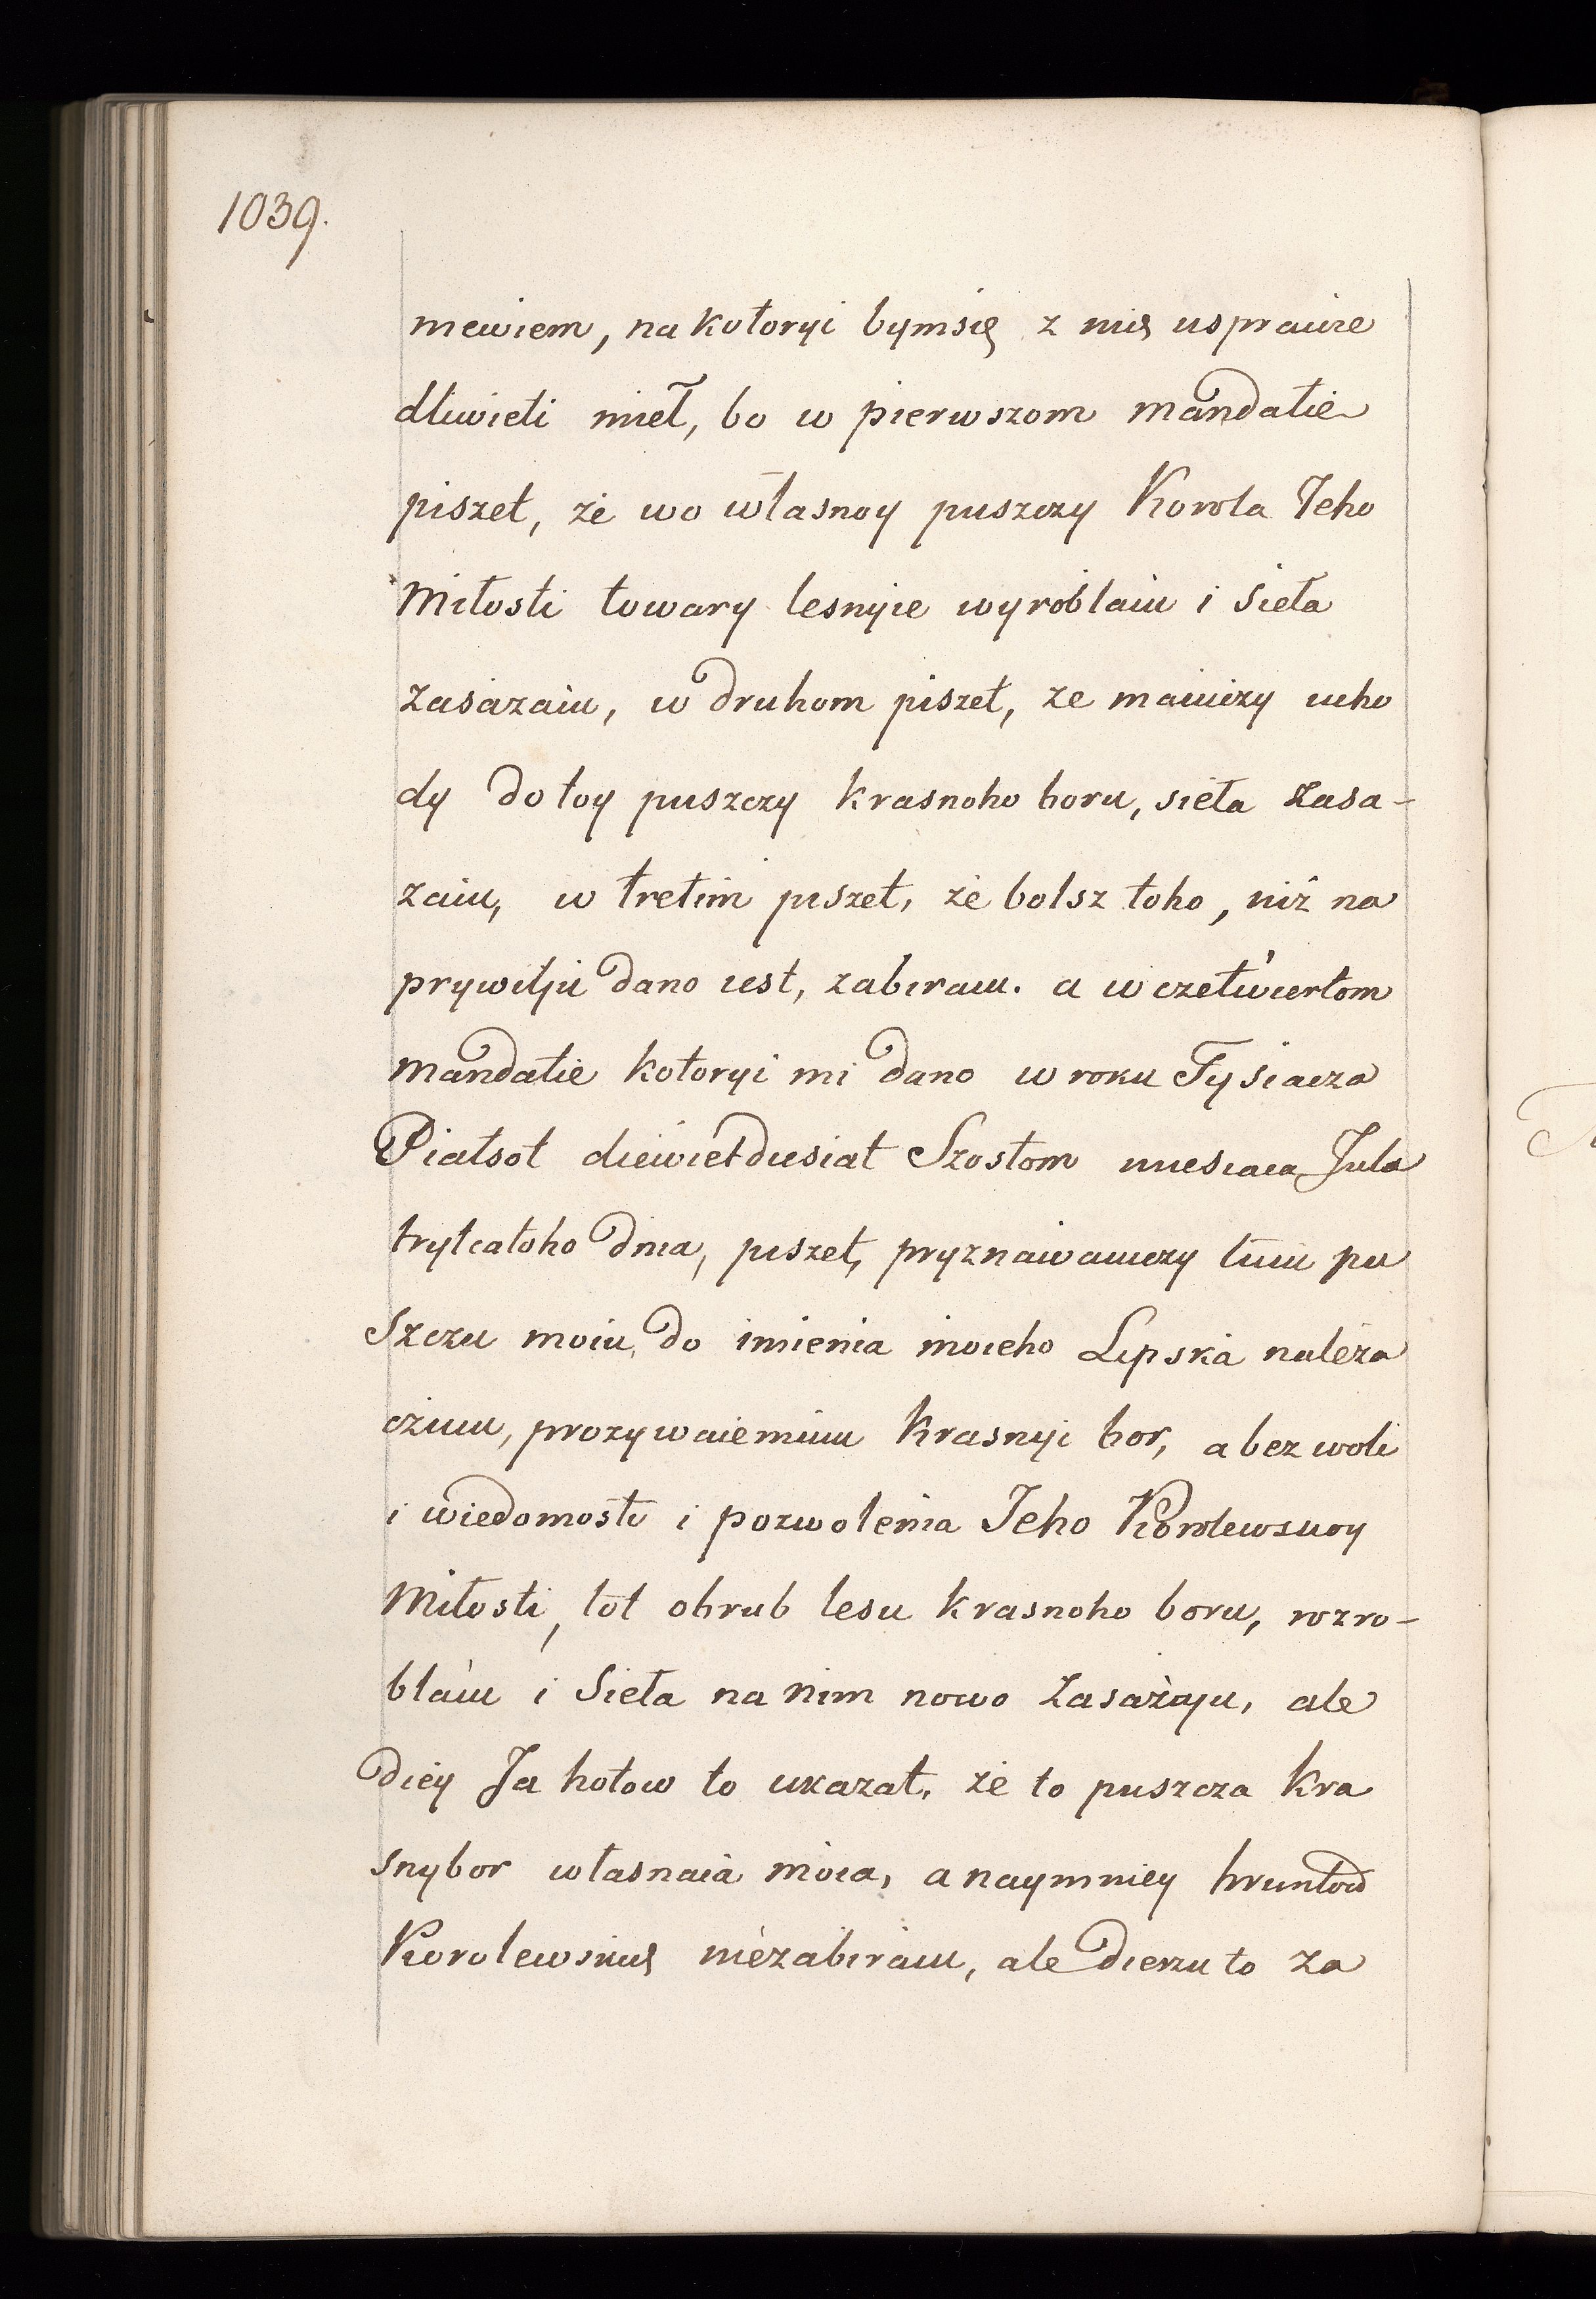 1039.
niewiem, na kotoryi bymsię z nich usprawie
dliwieti mieł, bo w pierwszom mandatie
piszet, że wo własnoy puszczy Korola Jeho
Miłosti towary lesnyie wyroblaiu i sieła
zasażaiu, w druhom piszet, że maiuczy ucho
dy do toy puszczy krasnoho boru, sieła zasa-
żaiu, w tretim piszet, że bolsz toho, niż na
prywilju dano iest, zabiraiu. a w czetwiertom
mandatie kotoryi mi dano w roku Tysiacza
Piatsot diewietdiesiat Szostom miesiaca Jula
trytcatoho dnia, piszet, pryznaiwaiuczy tuiu pu
szczu moiu, do imienia moieho Lipska należa
cziuiu, prozywaiemuiu Krasnyi bor, a bez woli
i wiedomosti i pozwolenia Jeho Korolewskoy
Miłosti, tot obrub lesu krasnoho boru, rozro-
blaiu i Sieła na nim nowo zasażaju, ale
diey Ja hotow to ukazat, że to puszcza Kra
snybor własnaia moia, a naymniey hruntow
Korolewskich niezabiraiu, ale dierżu to za